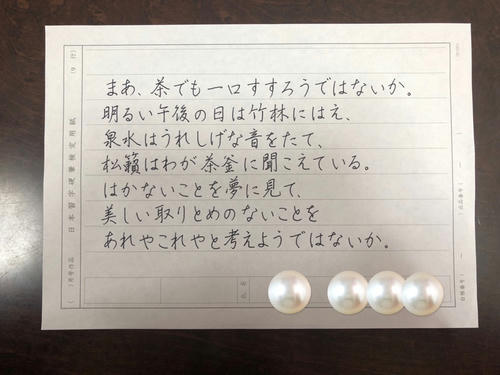 まあ、茶でも一口すすろうではないか。
明るい午後の日は竹林にはえ、
泉水はうれしげな音をたて、
松籟はわが茶釜に聞こえている。
はかないことを夢に見て、
美しい取りとめのないことを
あれやこれやと考えようではないか。
日本習字硬筆検定用紙
氏名